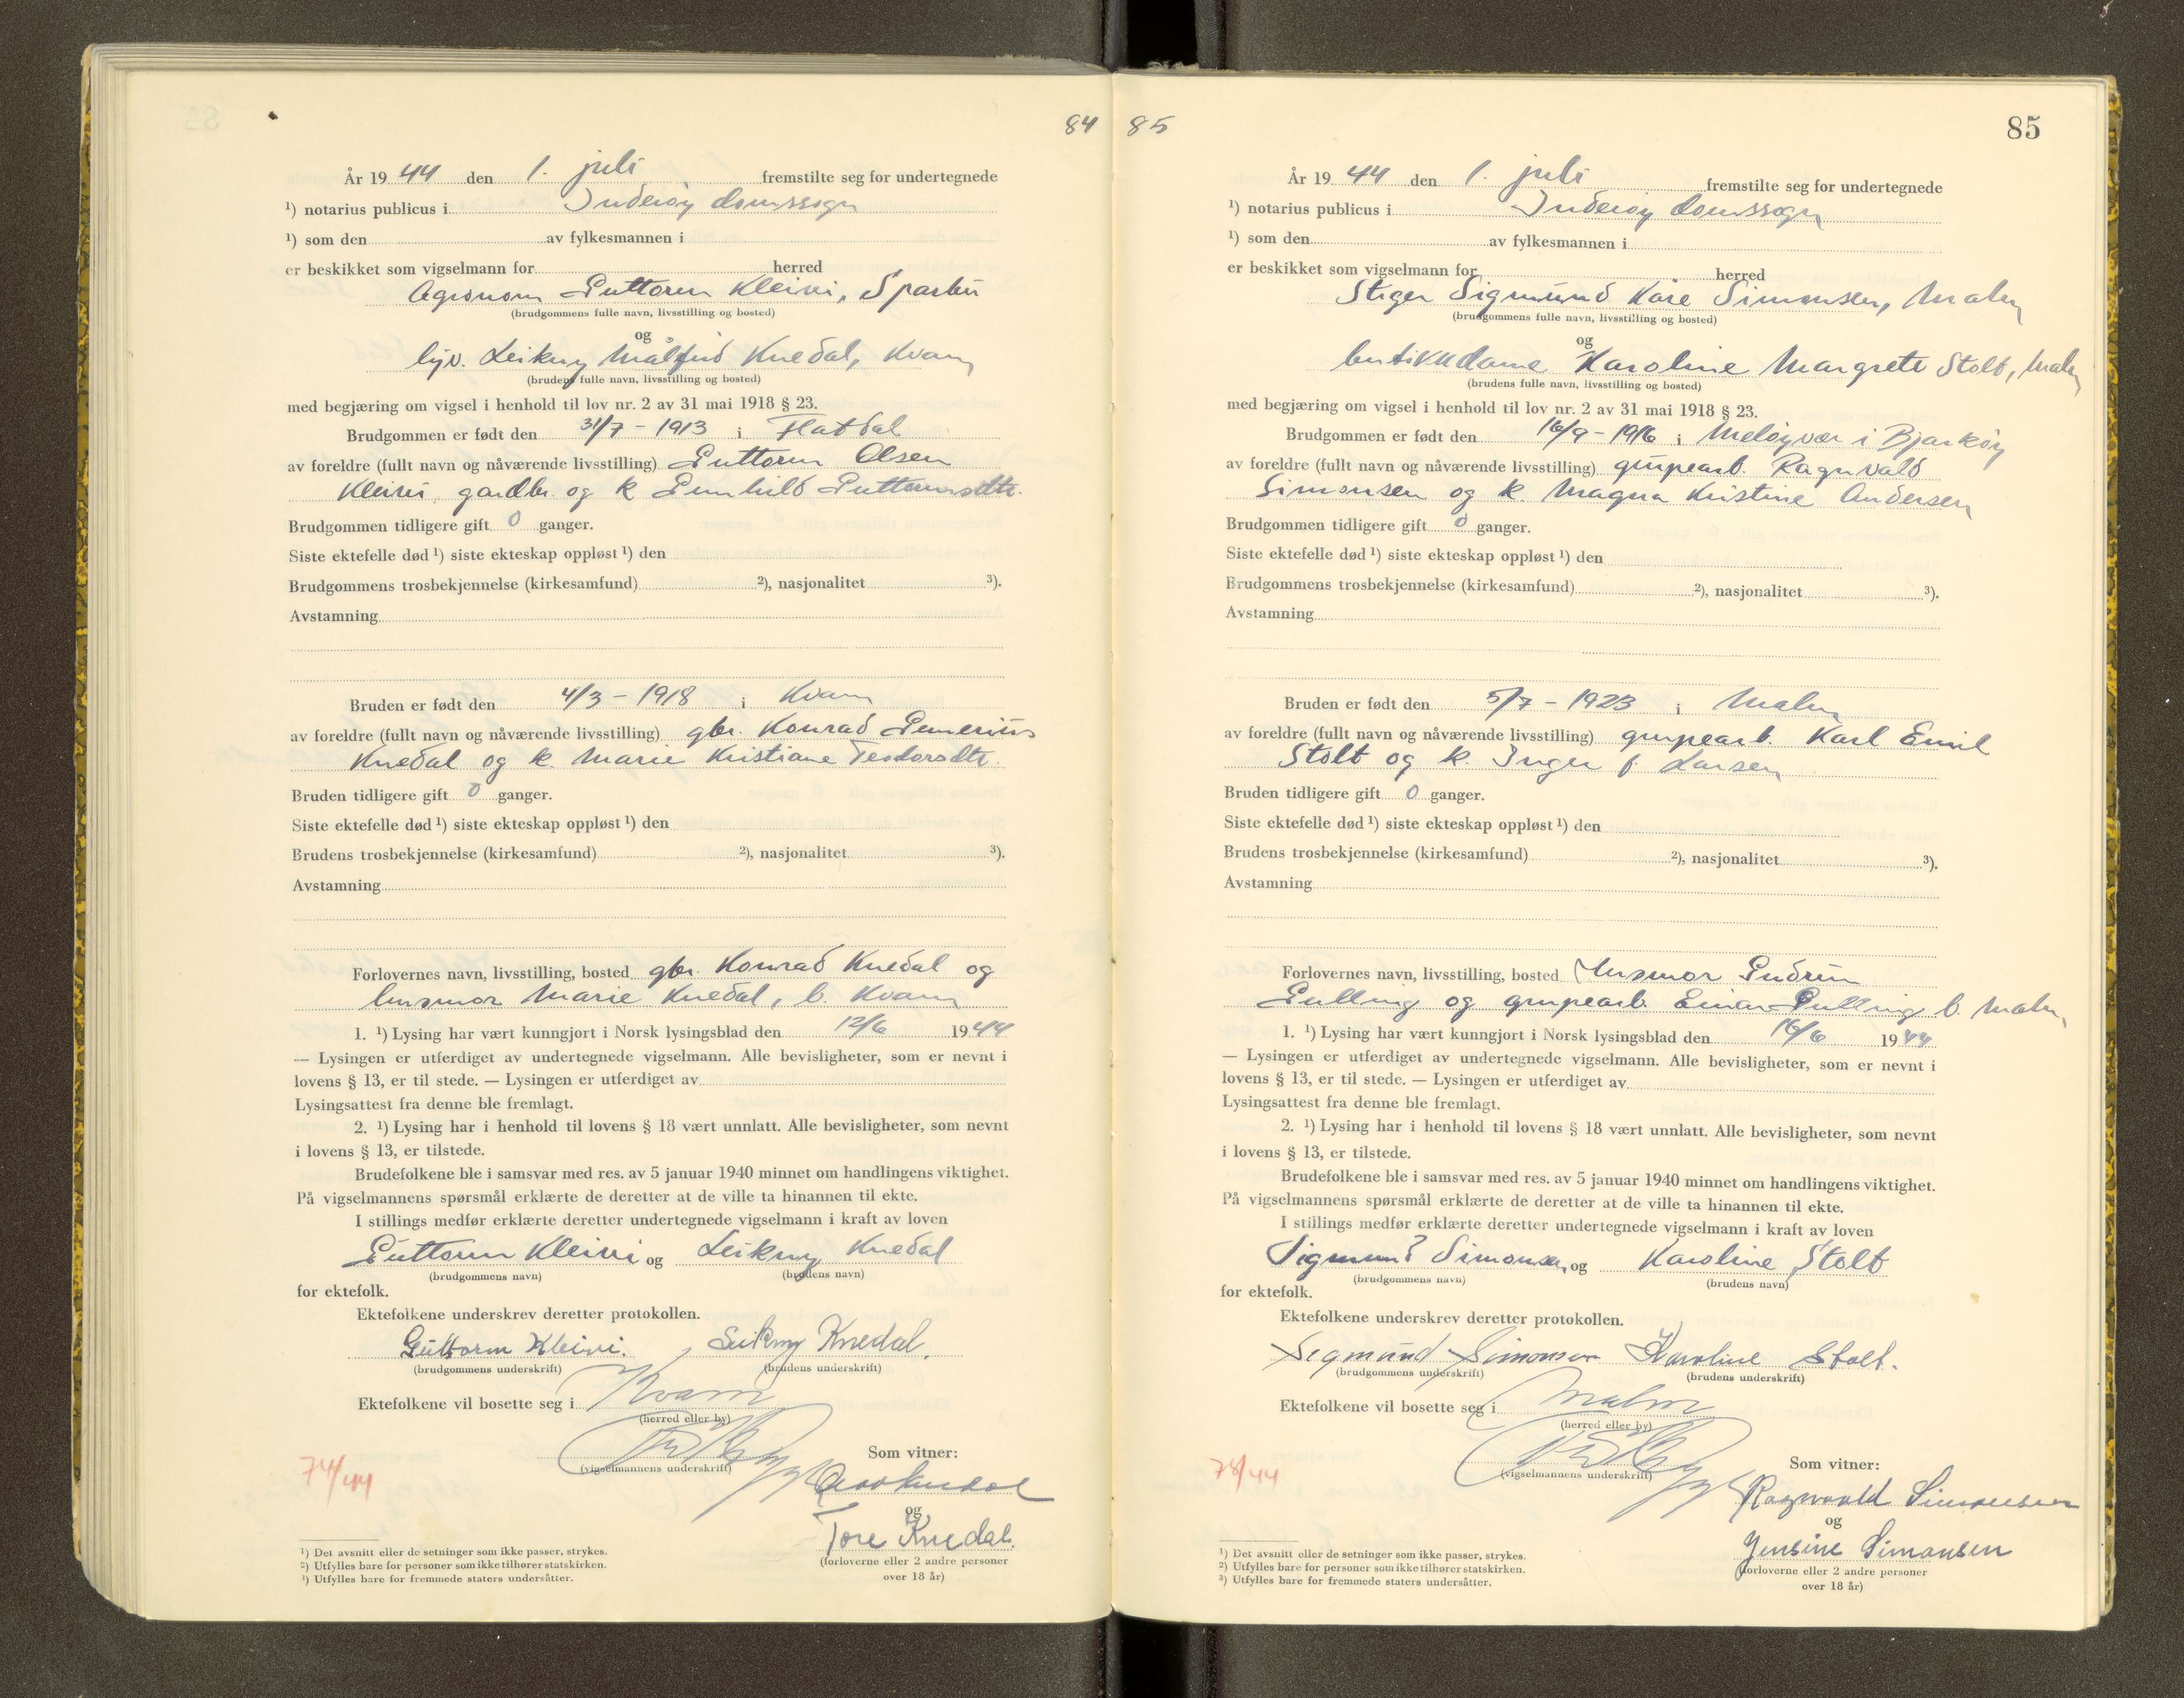 84
År 1944 den 1. juli fremstilte seg for undertegnede
¹) notarius publicus i Inderøy domssogn
¹) som den av fylkesmannen i
er beskikket som vigselmann for herred
Agronom Guttorm Kleivi, Sparbu
(brudgommens fulle navn, livsstilling og bosted)
og
Leikny Målfrid Knedal, Kvam
(brudens fulle navn, livsstilling og bosted)
med begjæring om vigsel i henhold til lov nr. 2 av 31 mai 1918 § 23.
Brudgommen er født den 31/7 - 1913 i Flatdal
av foreldre (fullt navn og nåværende livsstilling) Guttorm Olsen
Kleivi, gardbr. og k. Gunhild Guttormsdtr.
Brudgommen tidligere gift 0 ganger.
Siste ektefelle død ¹) siste ekteskap oppløst ¹) den
Brudgommens trosbekjennelse (kirkesamfund) ²), nasjonalitet ³).
Avstamning
Bruden er født den 4/3 - 1918 i Kvam
av foreldre (fullt navn og nåværende livsstilling) gbr. Konrad
Knedal og k. Marie Kristiane Teodorsdtr.
Bruden tidligere gift 0 ganger.
Siste ektefelle død ¹) siste ekteskap oppløst ¹) den
Brudens trosbekjennelse (kirkesamfund) ²), nasjonalitet ³).
Avstamning
Forlovernes navn, livsstilling, bosted gbr. Konrad Knedal og
husmor Marie Knedal, b. Kvam
1. ¹) Lysing har vært kunngjort i Norsk lysingsblad den 12/6 1944
— Lysingen er utferdiget av undertegnede vigselmann. Alle bevisligheter, som er nevnt i
lovens § 13, er til stede. — Lysingen er utferdiget av
Lysingsattest fra denne ble fremlagt.
2. ¹) Lysing har i henhold til lovens § 18 vært unnlatt. Alle bevisligheter, som nevnt
i lovens § 13, er tilstede.
Brudefolkene ble i samsvar med res. av 5 januar 1940 minnet om handlingens viktighet.
På vigselmannens spørsmål erklærte de deretter at de ville ta hinannen til ekte.
I stillings medfør erklærte deretter undertegnede vigselmann i kraft av loven
Guttorm Kleivi og Leikny Knedal
(brudgommens navn) (brudens navn)
for ektefolk.
Ektefolkene underskrev deretter protokollen.
Guttorm Kleivi. Leikny Knedal.
(brudgommens underskrift) (brudens underskrift)
Ektefolkene vil bosette seg i Kvam
(herred eller by)
(vigselmannens underskrift)
Som vitner:
74/44
og
Tore Knedal.
(forloverne eller 2 andre personer
over 18 år)
¹) Det avsnitt eller de setninger som ikke passer, strykes.
²) Utfylles bare for personer som ikke tilhører statskirken.
³) Utfylles bare for fremmede staters undersåtter.
85
85
År 1944 den 1. juli fremstilte seg for undertegnede
¹) notarius publicus i Inderøy domssogn
¹) som den av fylkesmannen i
er beskikket som vigselmann for herred
Stiger Sigmund Kåre Simonsen, Malm
(brudgommens fulle navn, livsstilling og bosted)
og
butikkdame Karoline Margrete Stolt, Malm
(brudens fulle navn, livsstilling og bosted)
med begjæring om vigsel i henhold til lov nr. 2 av 31 mai 1918 § 23.
Brudgommen er født den 16/9 - 1916 i Meløyvær i Bjarkøy
av foreldre (fullt navn og nåværende livsstilling) grupearb. Ragnvald
Simonsen og k. Magna Kristine Andersen
Brudgommen tidligere gift 0 ganger.
Siste ektefelle død ¹) siste ekteskap oppløst ¹) den
Brudgommens trosbekjennelse (kirkesamfund) ²), nasjonalitet ³).
Avstamning
Bruden er født den 5/7 - 1923 i Malm
av foreldre (fullt navn og nåværende livsstilling) grupearb. Karl Emil
Stolt og k. Inger f. Larsen
Bruden tidligere gift 0 ganger.
Siste ektefelle død ¹) siste ekteskap oppløst ¹) den
Brudens trosbekjennelse (kirkesamfund) ²), nasjonalitet ³).
Avstamning
Forlovernes navn, livsstilling, bosted husmor Gudrun
Gulling og grupearb. Einar Gulling b. Malm
1. ¹) Lysing har vært kunngjort i Norsk lysingsblad den 16/6 1944
— Lysingen er utferdiget av undertegnede vigselmann. Alle bevisligheter, som er nevnt i
lovens § 13, er til stede. — Lysingen er utferdiget av
Lysingsattest fra denne ble fremlagt.
2. ¹) Lysing har i henhold til lovens § 18 vært unnlatt. Alle bevisligheter, som nevnt
i lovens § 13, er tilstede.
Brudefolkene ble i samsvar med res. av 5 januar 1940 minnet om handlingens viktighet.
På vigselmannens spørsmål erklærte de deretter at de ville ta hinannen til ekte.
I stillings medfør erklærte deretter undertegnede vigselmann i kraft av loven
Sigmund Simonsen og Karoline Stolt
(brudgommens navn) (brudens navn)
for ektefolk.
Ektefolkene underskrev deretter protokollen.
Sigmund Simonsen Karoline Stolt.
(brudgommens underskrift) (brudens underskrift)
Ektefolkene vil bosette seg i Malm
(herred eller by)
(vigselmannens underskrift)
Som vitner:
78/44
Ragnvald Simonsen
og
Jensine Simonsen
(forloverne eller 2 andre personer
over 18 år)
¹) Det avsnitt eller de setninger som ikke passer, strykes.
²) Utfylles bare for personer som ikke tilhører statskirken.
³) Utfylles bare for fremmede staters undersåtter.